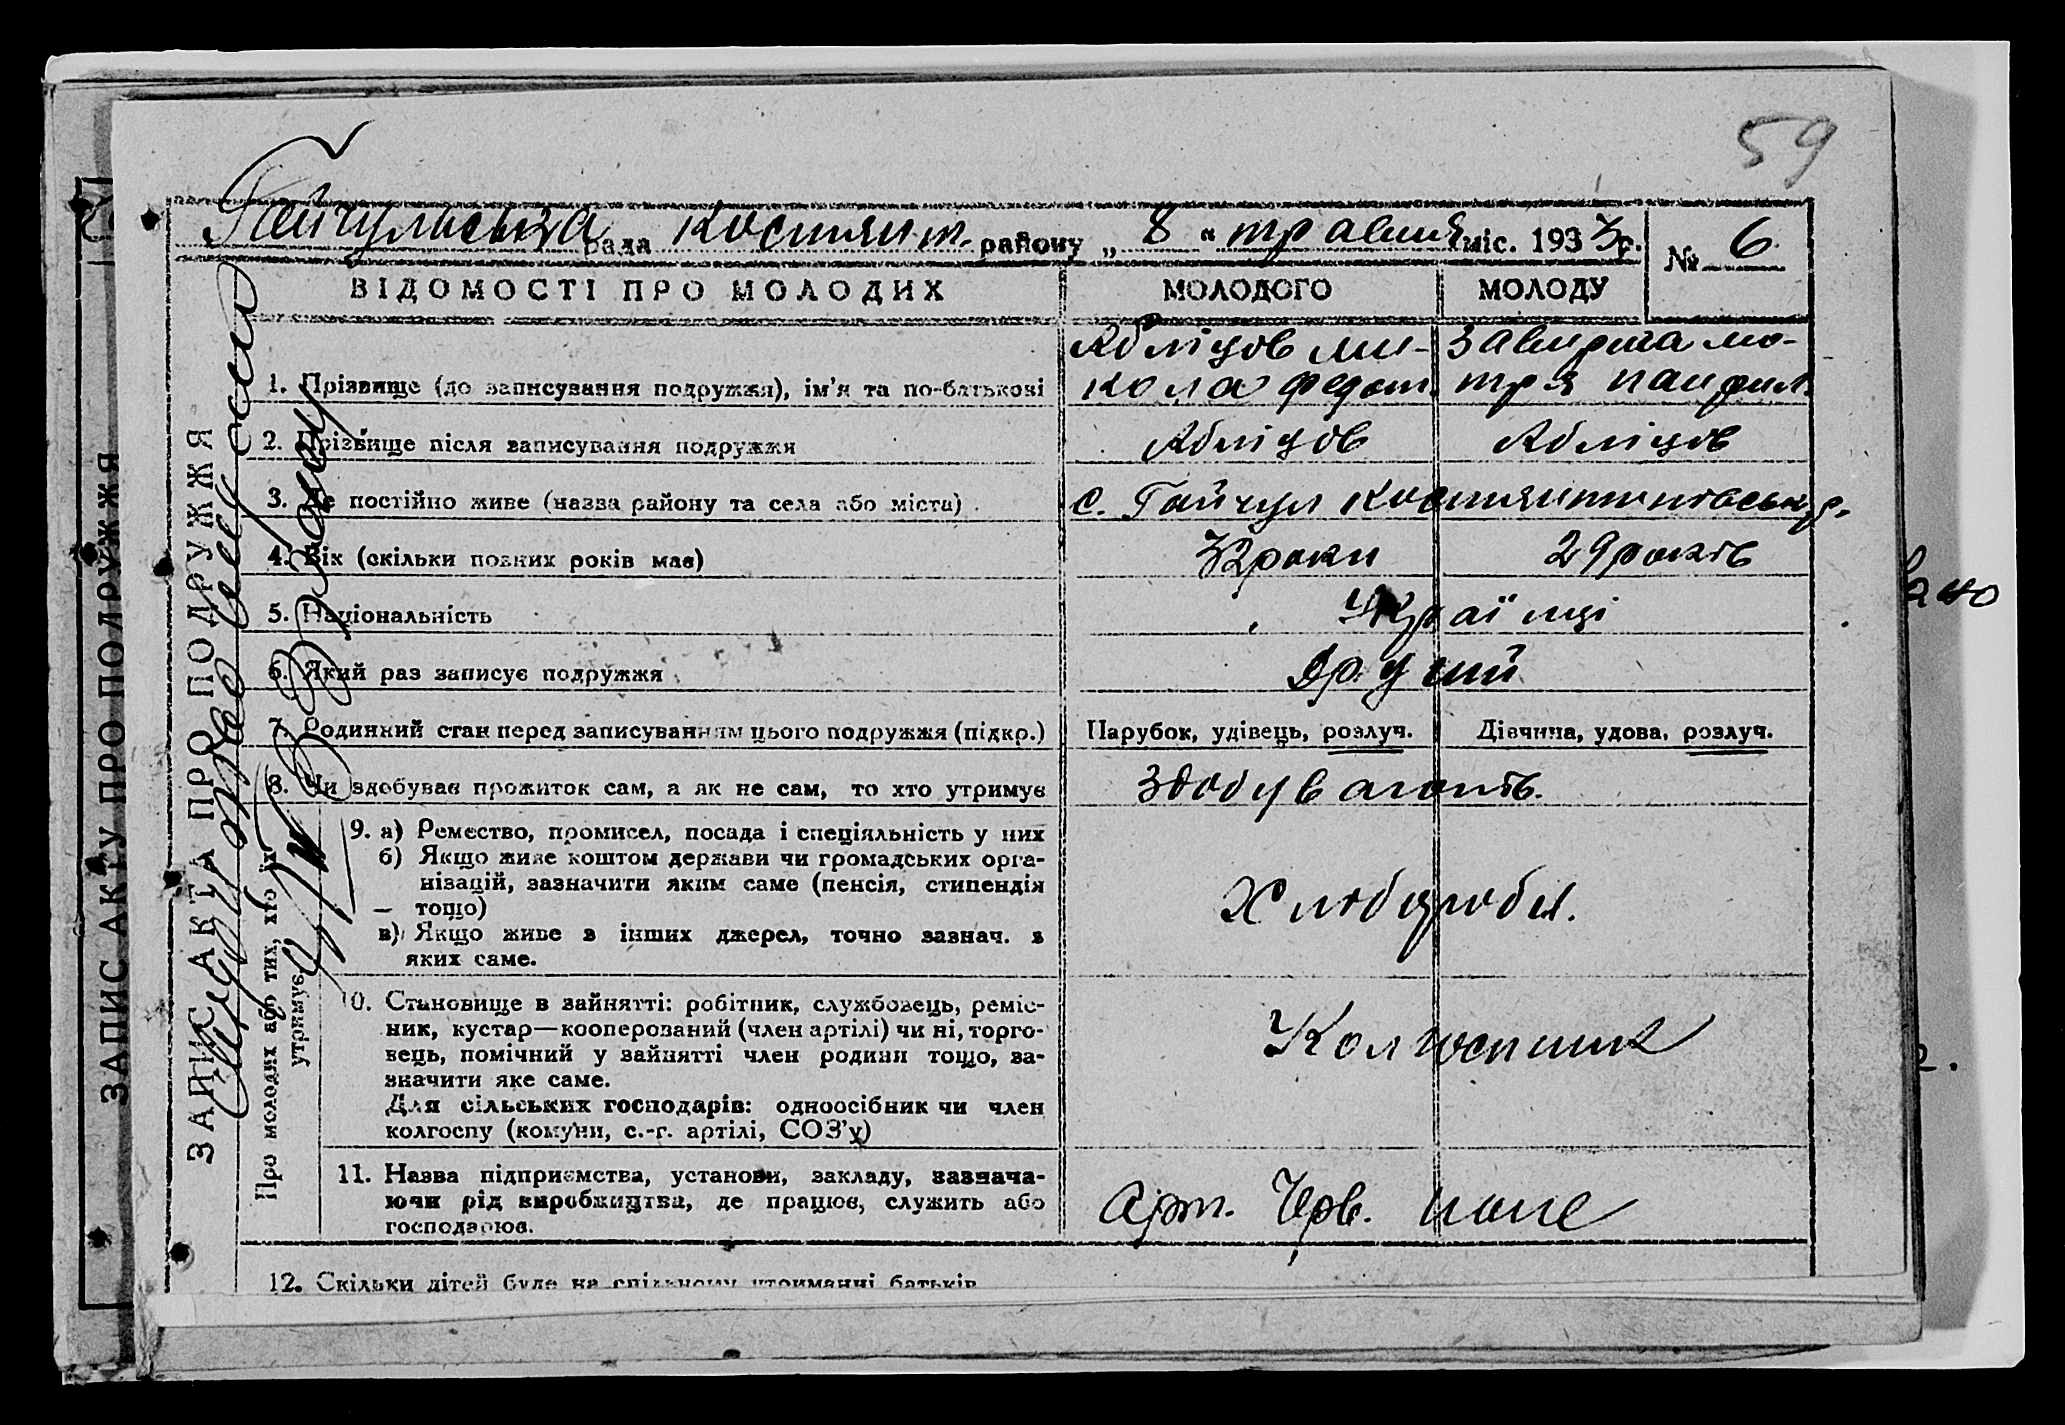 59
Гайчульська рада Костянт. району „ 8 “ травня міс. 1933 р. № 6
ВІДОМОСТІ ПРО МОЛОДИХ МОЛОДОГО МОЛОДУ
1. Прізвище (до записування подружжя), ім'я та по-батькові
Абліцов Ми-
кола Федот.
Завирта мо-
тря панфил.
2. Прізвище після записування подружжя Абліцов Абліцов
3. Де постійно живе (назва району та села або міста) с. Гайчул Костянтинівськ. р.
4. Вік (скільки повних років має) 32 роки 29 років
5. Національність Українці
6. Який раз записує подружжя Другий
7. Родинний стан перед записуванням цього подружжя (підкр.) Парубок, удівець, розлуч. Дівчина, удова, розлуч.
8. Чи здобуває прожиток сам, а як не сам, то хто утримує Здобувають.
9. а) Ремество, промисел, посада і спеціяльність у них
б) Якщо живе коштом держави чи громадських орга-
нізацій, зазначити яким саме (пенсія, стипендія
— тощо)
в) Якщо живе з інших джерел, точно зазнач. з
яких саме.
Хлібороби.
10. Становище в зайнятті: робітник, службовець, реміс-
ник, кустар—кооперований (член артілі) чи ні, торго-
вець, помічний у зайнятті член родини тощо, за-
значити яке саме.
Для сільських господарів: одноосібник чи член
колгоспу (комуни, с.-г. артілі, СОЗ'у)
Колгоспник
11. Назва підприємства, установи, закладу, зазнача-
ючи рід виробництва, де працює, служить або
господарює.
Арт. Черв. поле
12. Скільки дітей буде на спільному утриманні батьків
ЗАПИС АКТА ПРО ПОДРУЖЖЯ
Про молодих або тих, хто їх
утримує
ЗАПИС АКТУ ПРО ПОДРУЖЖЯ